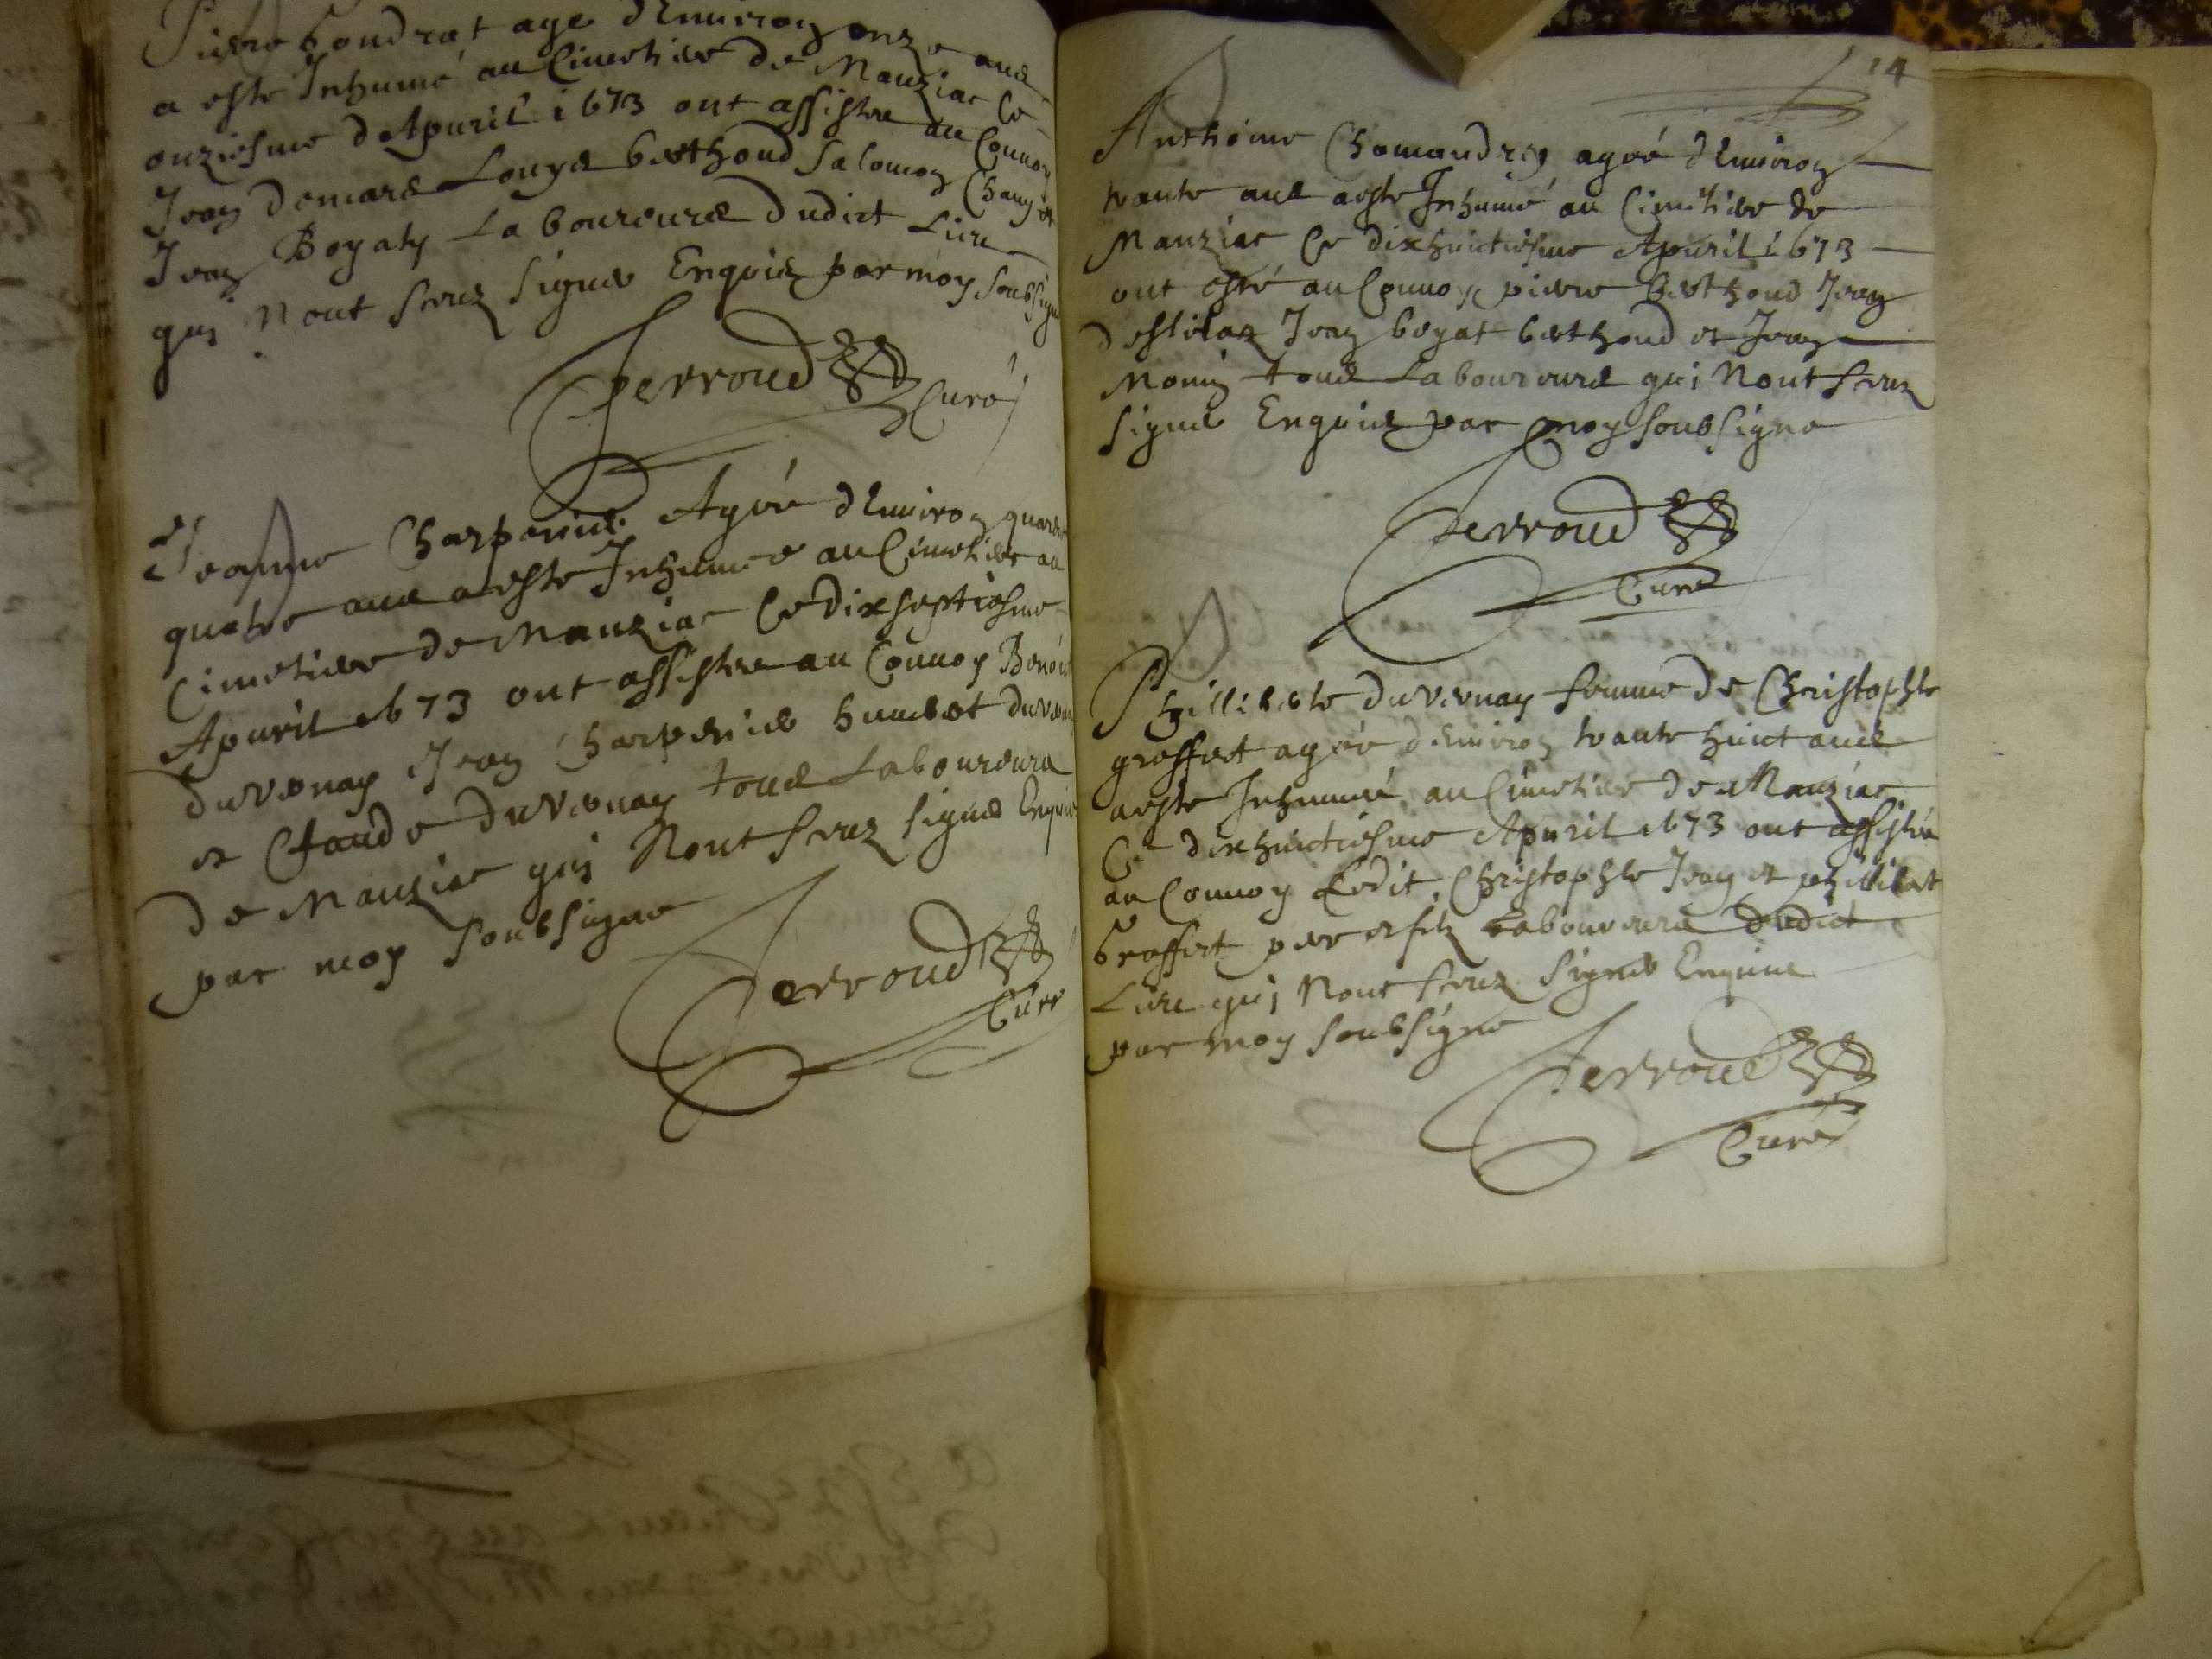 Pierre boudrat age dEnuiron onze ans
a este Inhumé au Cimetiere de Manziac Ce
onziesme dApuril 1673 ont assistre au Conuoy
Jean demars Louys berthoud Salomon Chanu et
Jean Boyat Laboureurs dudict Lieu
qui Nont sceuz signer Enquis par moy soubsigne
Perroud Curé
Jeanne Charpenie Agée dEnuiron quarante
quatre ans a este Inhumee au Cimetiere au
Cimetiere de Manziac Ce dixseptiesme
Apuril 1673 ont assistre au Conuoy Benoist
duvernay Jean Charpenie humbert duvernay
et Claude duvernay tous Laboureurs
de Manziac qui Nont sceuz signer Enquis
par moy soubsigne
Perroud Curé
14
Anthoine Chamandrey agée dEnuiron
trante ans a este Inhumé au Cimitiere de
Manziac Ce dixhuictiesme Apuril 1673
ont esté au Conuoy pierre berthoud Jean
Jean boyat berthoud et Jean
Monin tous Laboureurs qui Nont sceuz
signer Enquis par moy soubsigne
Perroud
Curé
Philliberte duvernay femme de Christophle
greffet agée dEnuiron trante huict ans
a este Inhumé au Cimetiere de Manziac
Ce dixhuictiesme Apuril 1673 ont assistée
au Conuoy Ledit Christophle Jean et phillibert
Greffet pere et filz Laboureurs dudict
Lieu qui Nont sceuz signer Enquis
par moy soubsigne
Perroud
Curé